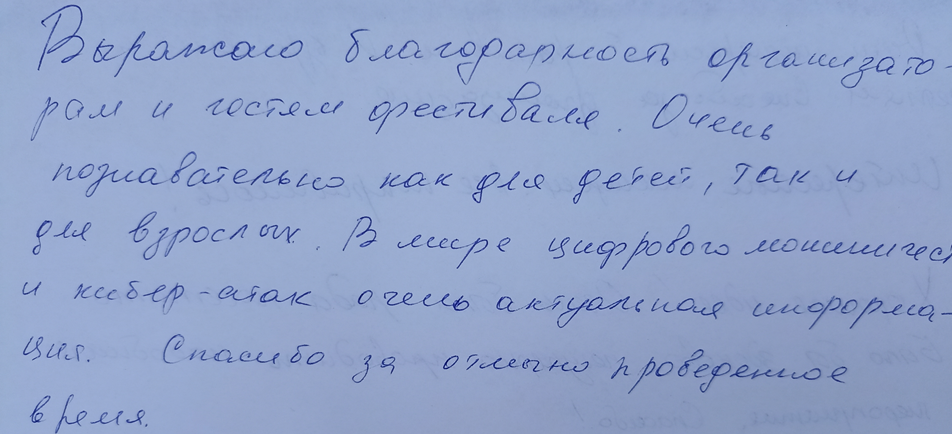 Выражаю благодарность организато-
рам и гостям фестиваля. Очень
познавательно как для детей, так и
для взрослых. В мире цифрового мошеничест
и кибер-атак очень актуальная информа-
ция. Спасибо за отлично проведенное
время.